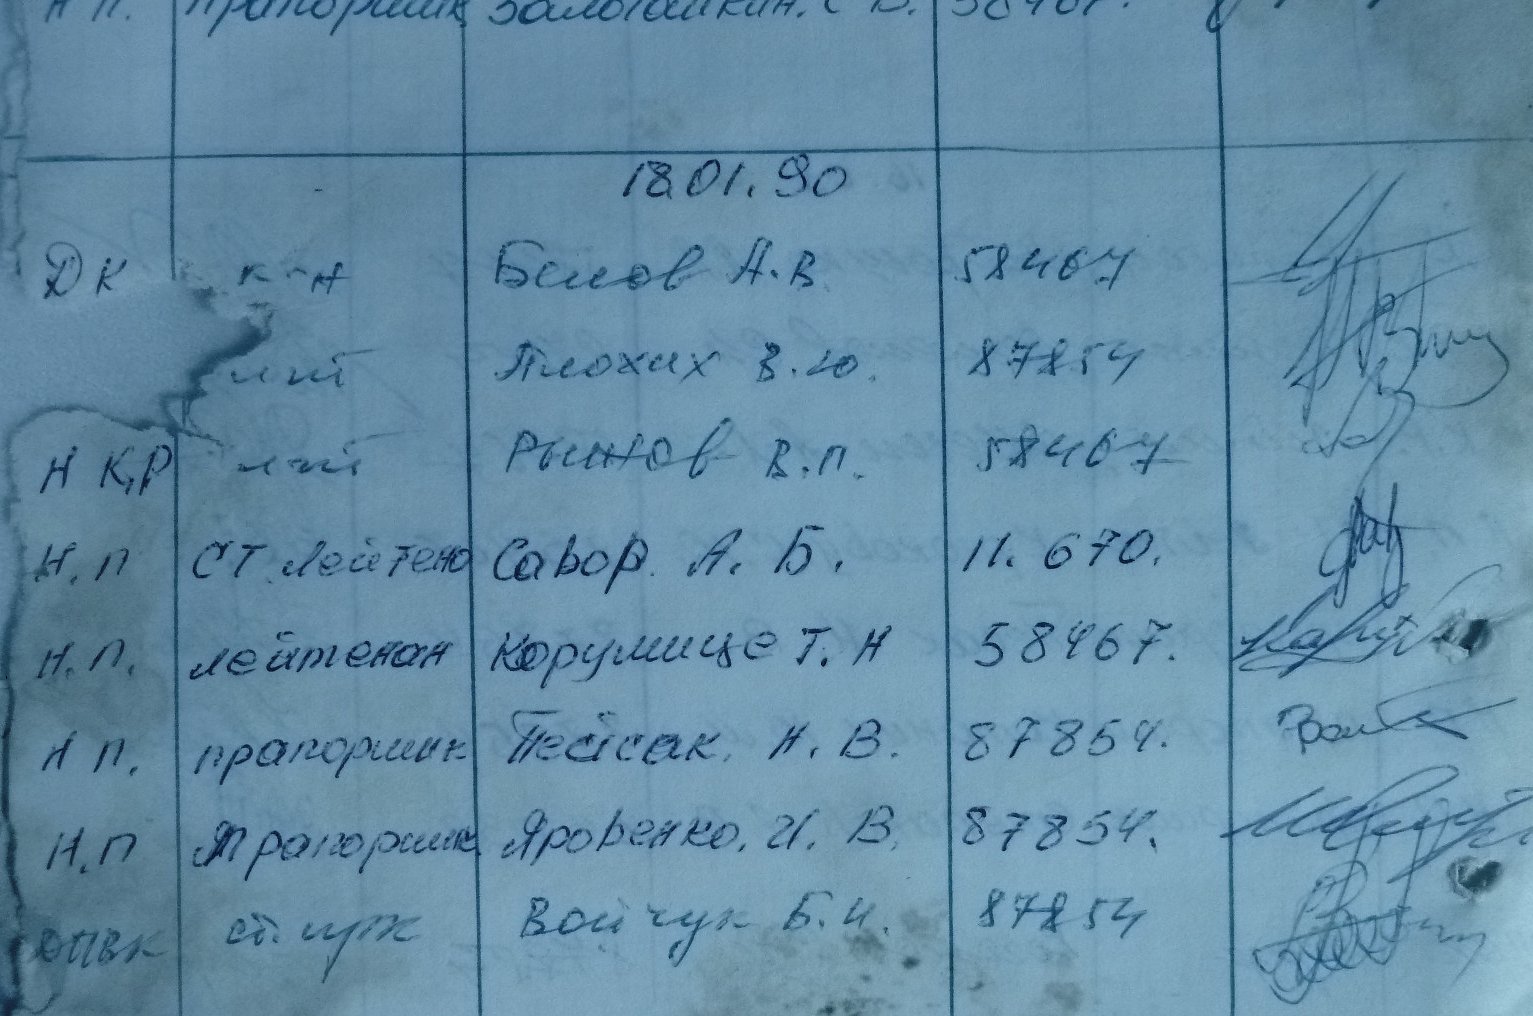 Н П. прапорщик 58467.
18.01.90
ДК к-н Белов А.В. 58467
л-т Плохих В.Ю. 87854
Н К,Р л-т Рыжов В.П. 58467
Н.П СТ. Лейтена Савор. А. Б. 11. 670.
Н.П. лейтенан Корумице Т. Н 58467.
Н П. прапорщик Пейсак. Н. В. 87854.
Н.П Прапорщик Яровенко. И. В. 87854.
ДПВК ст. Войчук Б.И. 87854